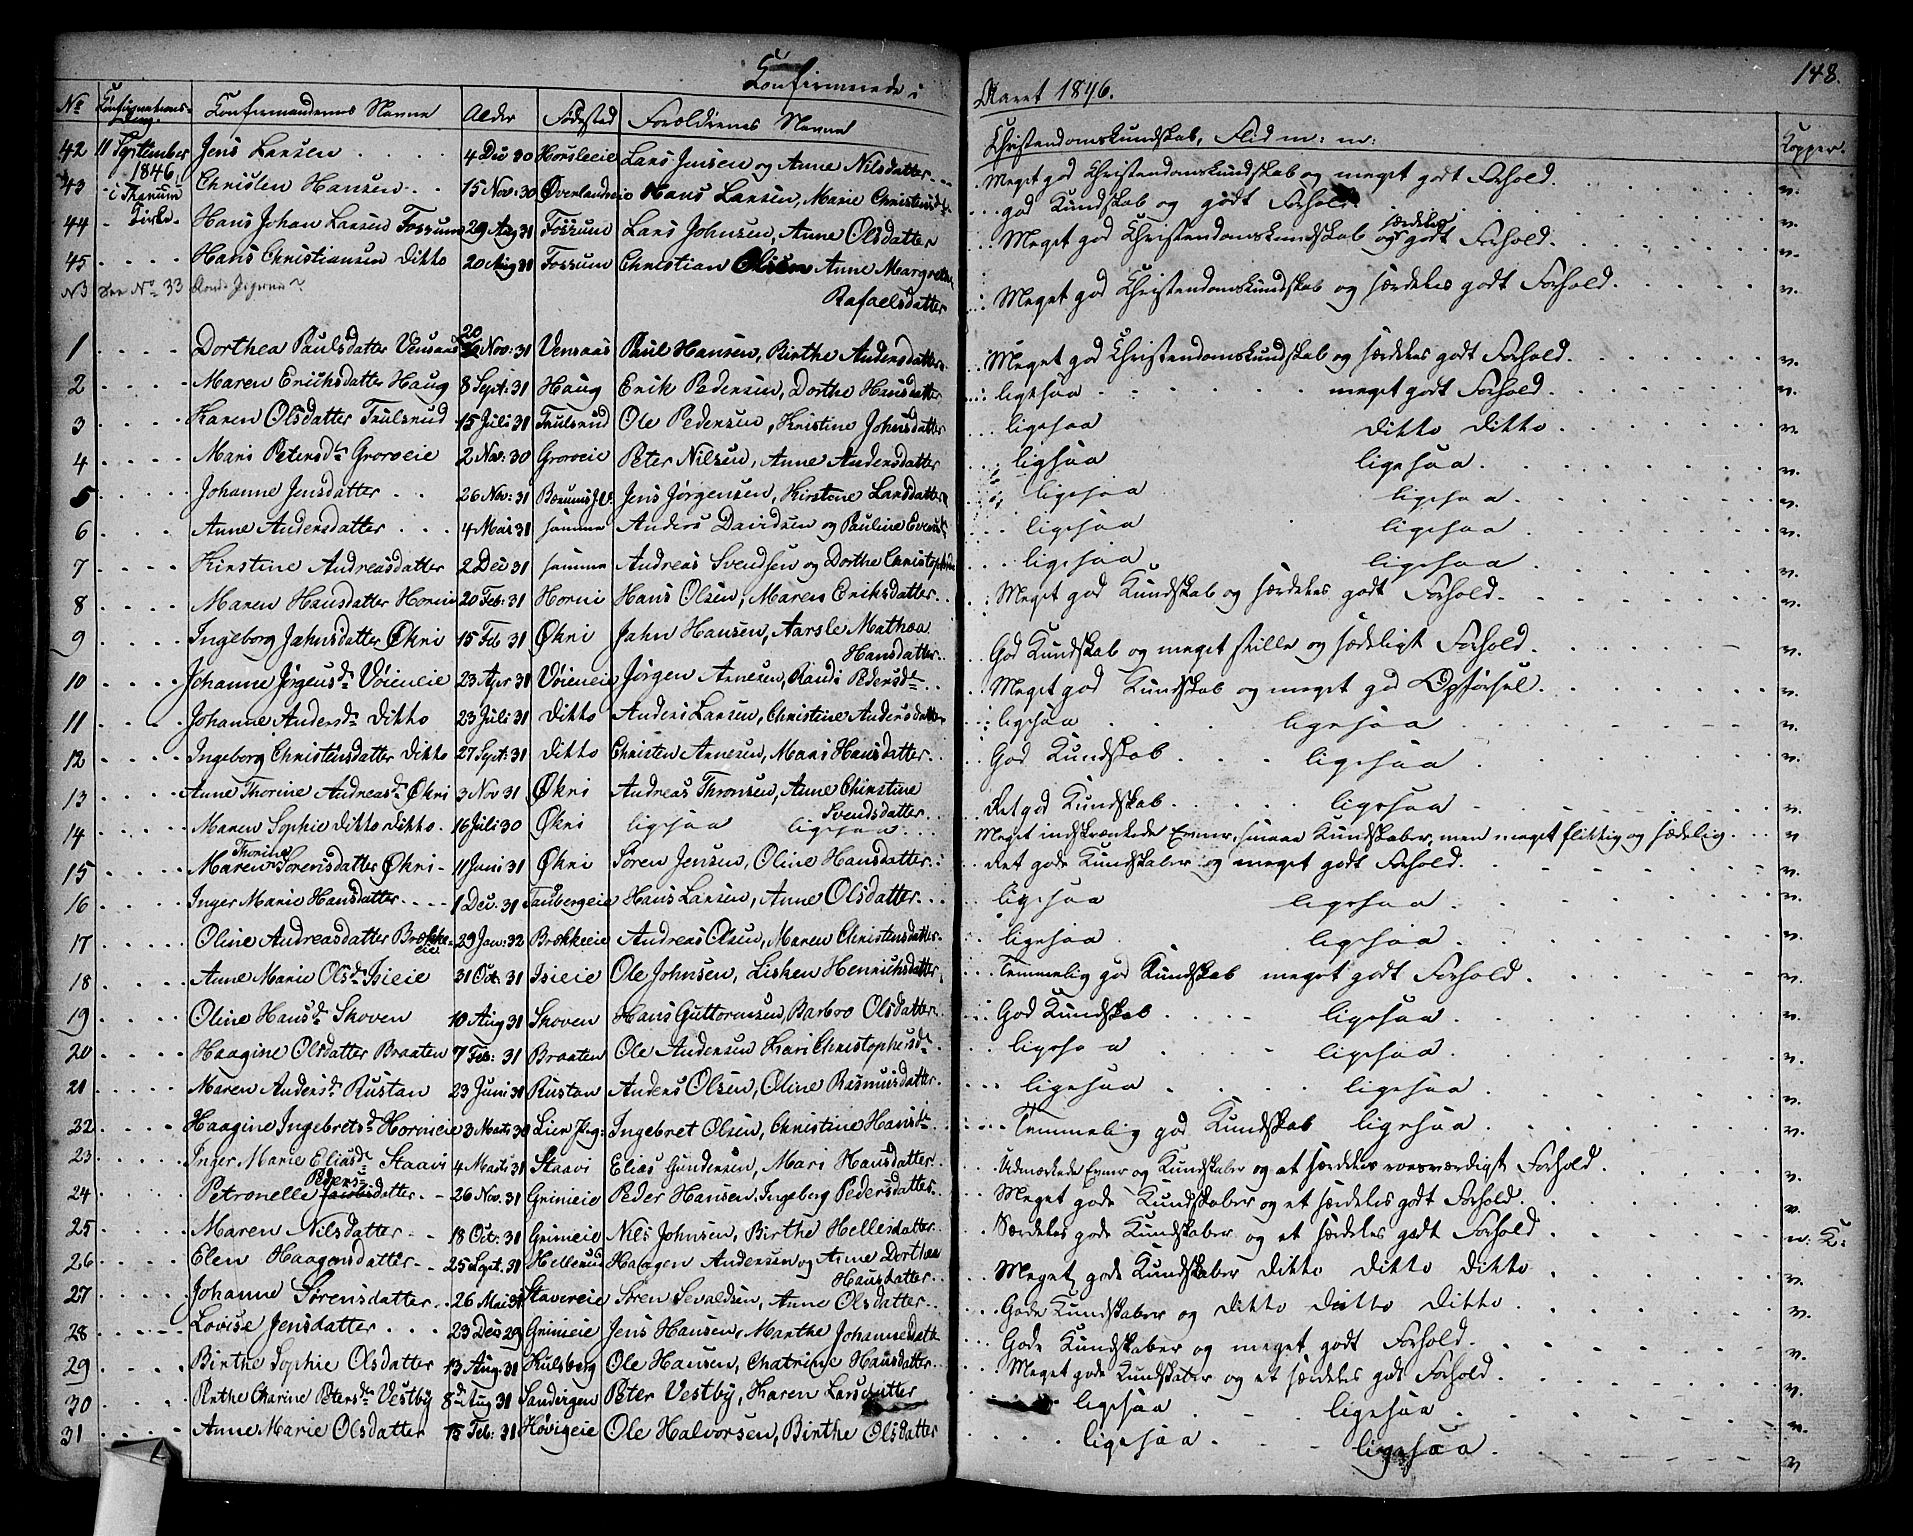 Konfirmerede i Aaret 1846. 148.
No Konfirmations-Dag. Konfirmandernes Navne Alder Fødested Forældrenes Navne Christendomskundskab, Flid m: m: Kopper.
42 11 September 1846 Jens Larsen 4 Dec 30 Horsleeie Lars Jensen og Anne Nilsdatter Meget god Christendomskundskab og meget godt Forhold. v.
43 i Tharum Christen Hansen 15 Nov: 30 Øverlandeeie Hans Larsen, Marie god Kundskab og godt Forhold v.
44 Kirke Hans Johan Larsen Fossum 29 Aug 31 Fossum Lars Johnsen, Anne Olsdatter Meget god Christendomskundskab og særdeles godt Forhold. v.
45 Hans Christiansen Ditto 20 Aug 31 Fossum Christian Olsen Anne Margrethe Rafaelsdatter Meget god Christendomskundskab og særdeles godt Forhold. v.
NB See No 33
1 Dorthea Paulsdatter Vensaas 20 Nov: 31 Vensaas Paul Hansen, Birthe Andersdatter Meget god Christendomskundskab og særdeles godt Forhold. v.
2 Maren Erichsdatter Haug 8 Sept: 31 Haug Erik Pedersen, Dorthe Hansdatter ligesaa meget godt Forhold. v.
3 Karen Olsdatter Trulsrud 15 Juli 31 Trulsrud Ole Pedersen, Kristine Johnsdatter ligesaa Ditto Ditto v.
4 Mari Petersd: Grorveie 2 Nov: 30 Grorveie Peter Nilsen, Anne Andersdatter ligesaa ligesaa v.
5 Johanne Jensdatter 26 Nov: 31 Bærums J.V. Jens Jørgensen, Kirstine Larsdatter ligesaa ligesaa v.
6 Anne Andersdatter 4 Mai 31 samme Anders Davidsen og Pauline ligesaa ligesaa v.
7 Kirstine Andreasdatter 2 Dec 31 samme Andreas Svendsen og Dorthe ligesaa ligesaa v.
8 Maren Hansdatter Horni 20 Feb: 31 Horni Hans Olsen, Maren Eriksdatter Meget god Kundskab og særdeles godt Forhold. v.
9 Ingeborg Jahnsdatter Økri 15 Feb 31 Økri Jahn Hansen, Aarsle Mathea Hansdatter God Kundskab og meget stille og sædeligt Forhold. v.
10 Johanne Jørgensd: Vøieneie 23 Apr 31 Vøieneie Jørgen Arnesen, Randi Pedersd: Meget god Kundskab og meget god Opførsel. v.
11 Johanne Andersd: Ditto 23 Juli 31 Ditto Anders Larsen, Christine Andersdatter ligesaa ligesaa v.
12 Ingeborg Christensdatter Ditto 27 Sept: 31 Ditto Christen Arnesen, Mari Hansdatter God Kundskab ligesaa v.
13 Anne Thorine Andreasd: Økri 3 Nov 31 Økri Andreas Thronsen, Anne Christine Svendsdatter Ret god Kundskab ligesaa v.
14 Maren Sophie Ditto Ditto 16 Juli 30 Økri ligesaa ligesaa Meget indskrænkede Evner, smaa Kundskaber, men meget flittig og sædelig. v
15 Maren Thorine Sørensdatter Økri 11 Juni 31 Økri Søren Jensen, Oline Hansdatter Ret gode Kundskaber og meget godt Forhold. v.
16 Inger Marie Hansdatter 1 Dec. 31 Taubergeie Hans Larsen, Anne Olsdatter ligesaa ligesaa v.
17 Oline Andreasdatter Brækkeeie 29 Jan: 32 Brækkeeie Andreas Olsen, Maren Christensdatter ligesaa ligesaa v.
18 Anne Marie Olsd: Isieie 31 Oct: 31 Isieie Ole Johnsen, Lisken Henrichsdatter Temmelig god Kundskab meget godt Forhold. v.
19 Oline Hansd: Skoven 10 Aug 31 Skoven Hans Guttormsen, Barbro Olsdatter God Kundskab ligesaa v.
20 Haagine Olsdatter Braaten 7 Feb: 31 Braaten Ole Andersen Kari Christophersd: ligesaa ligesaa v.
21 Maren Andersd: Rustan 23 Juni 31 Rustan Anders Olsen, Oline Rasmusdatter ligesaa ligesaa v.
22 Haagine Ingebretsd: Hornieie 3 Marts 30 Lier Ingebret Olsen, Christine Hansd: Temmelig god Kundskab ligesaa v.
23 Inger Marie Eliasd: Staavi 4 Marts 31 Staavi Elias Gundersen, Mari Hansdatter Udmærkede Evner og Kundskaber og et særdeles roesværdigt Forhold. v.
24 Petronelle Peders-datter 26 Nov. 31 Grinieie Peder Hansen, Ingeborg Pedersdatter Meget gode Kundskaber og et særdeles godt Forhold. v.
25 Maren Nilsdatter 18 Oct: 31 Grinieie Nils Johnsen, Birthe Hellesdatter Særdeles gode Kundskaber og et særdeles godt Forhold n: K:
26 Elen Haagensdatter 25 Sept. 31 Hellerud Haagen Andersen og Anne Dorthea Hansdatter Meget gode Kundskaber Ditto Ditto Ditto v.
27 Johanne Sørensdatter 26 Mai 31 Stavereie Søren Sevaldsen, Anne Olsdatter Gode Kundskaber og Ditto Ditto Ditto v.
28 Lovise Jensdatter 23 Dec 29 Grinieie Jens Hansen, Marthe Johannesdatt Gode Kundskaber og meget godt Forhold. v.
29 Birthe Sophie Olsdatter 13 Aug. 31 Hulsberg Ole Hansen, Chatrine Hansdatter Meget gode Kundskaber og et særdeles godt Forhold. v.
30 Rathe Charine Petersd: Vestby 8de Aug 31 Sandvigen Peter Vestby, Karen Larsdatter ligesaa ligesaa v.
31 Anne Marie Olsdatter 15 Feb: 31 Høvigeie Ole Halvorsen, Birthe Olsdatter ligesaa ligesaa v